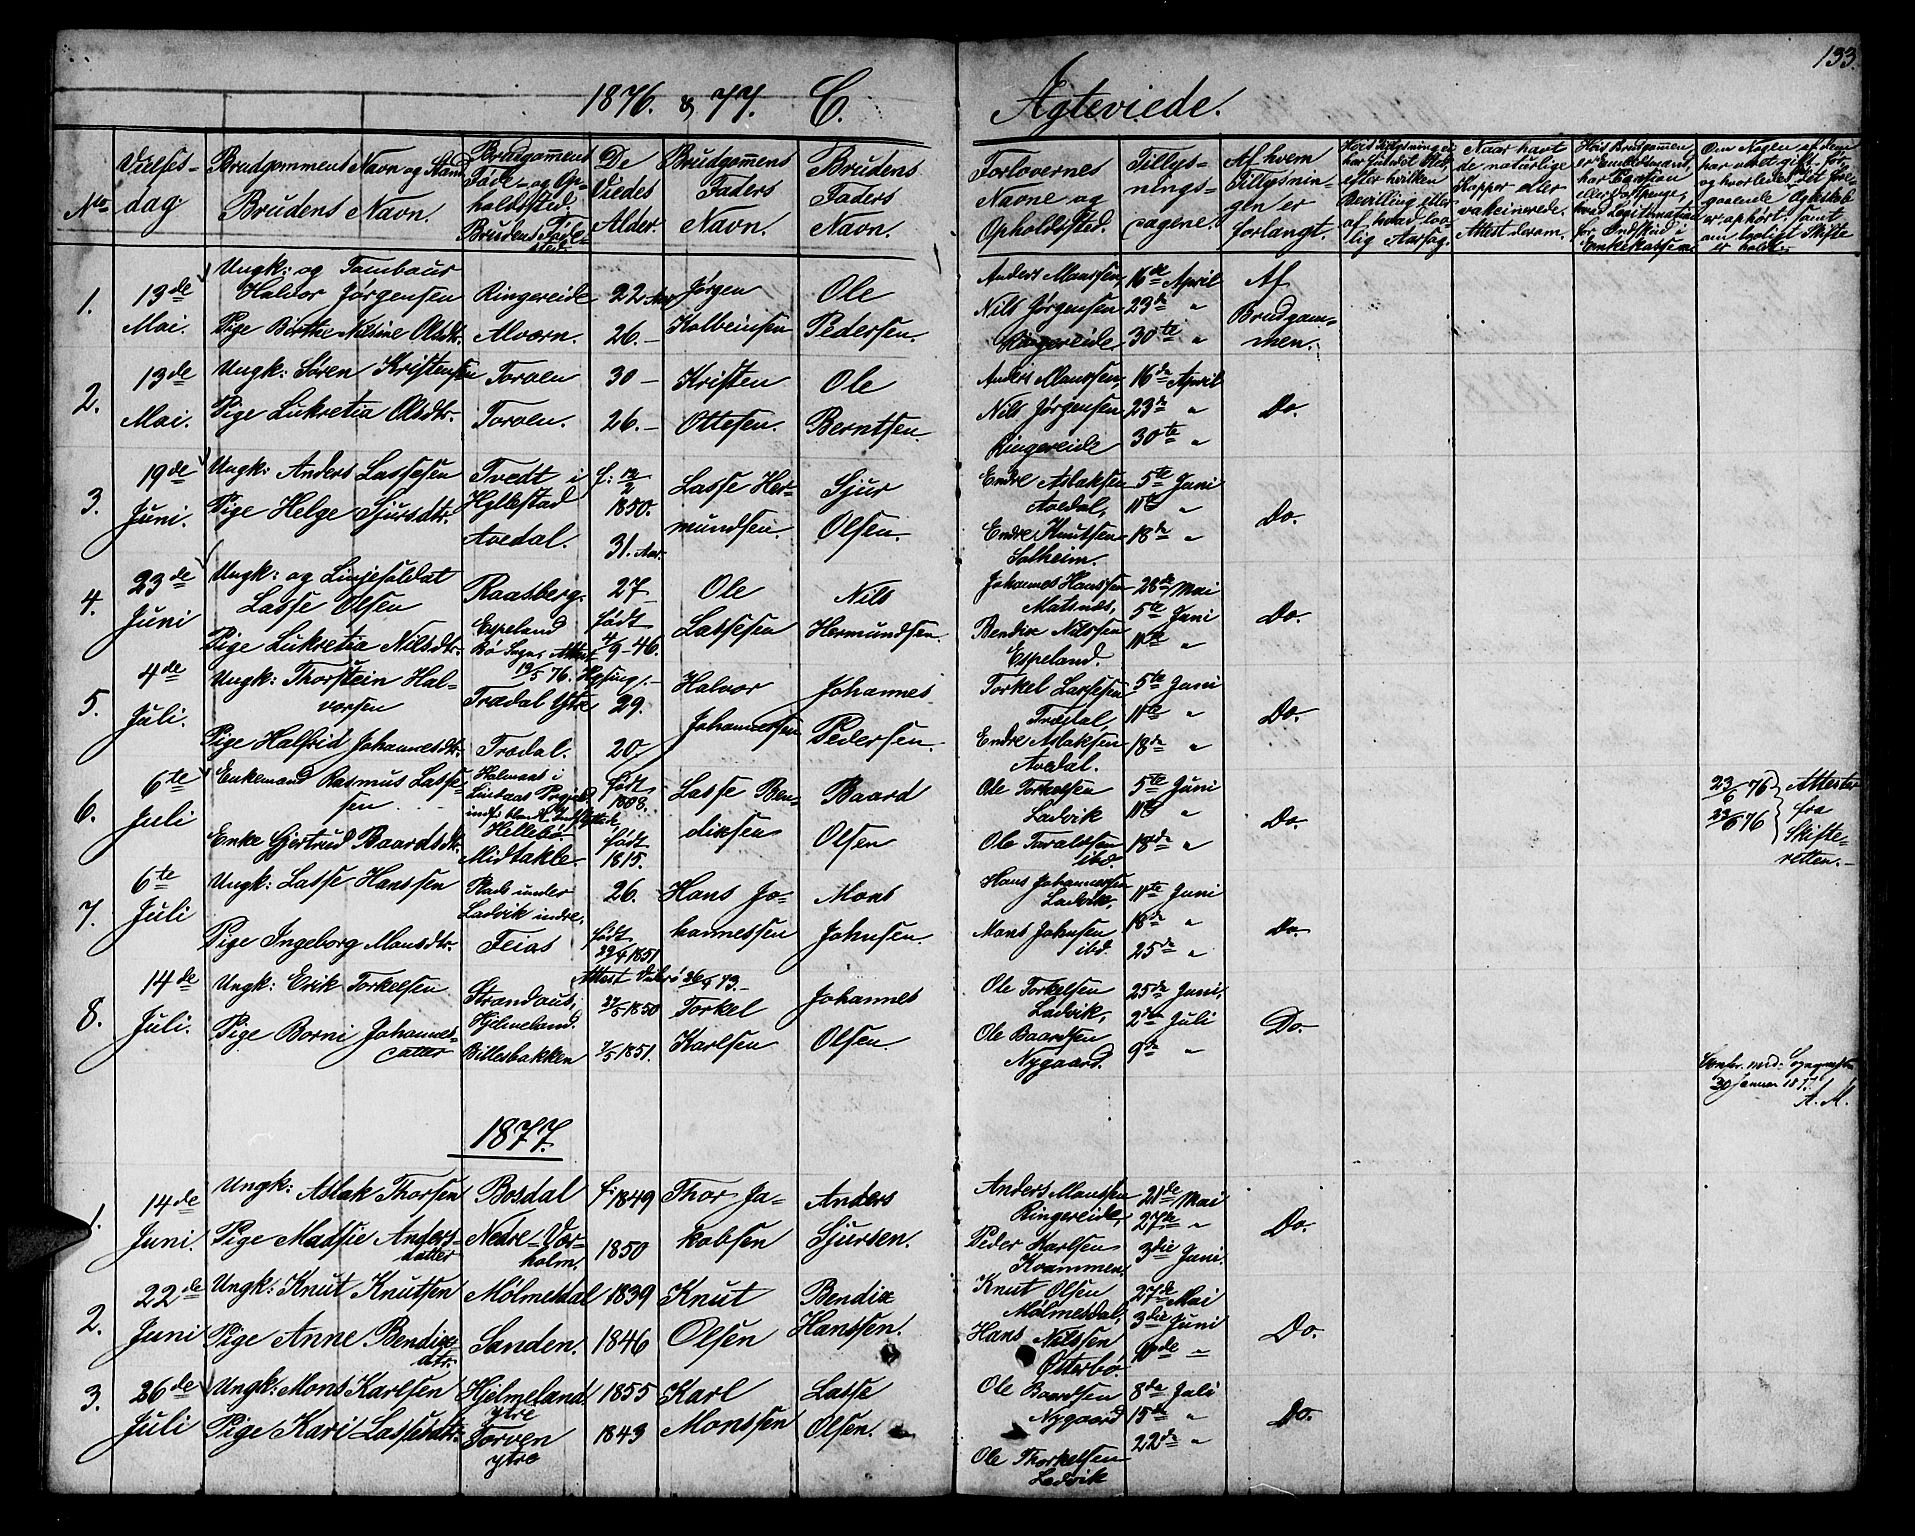 133.
1876. & 77. C. Agteviede.
No
Vielses-dag
Brudgommens Navn og Stand
Brudens Navn.
Brudgom̄ens Føde- og Opholdssted.
Brudens Føde-sted
De Viedes Alder.
Brudgom̄ens Faders Navn.
Brudens Faders Navn.
Forlovernes Navne og Opholdssted.
Tillysningsdagene.
Af hvem Tillysningen er forlangt.
Hvis Tillysning ei har fundet Sted, efter hvilken Bevilling eller af hvad lovlig Aarsag.
Naar havt de naturlige Kopper eller vakcinerede. Attest derom.
Hvis Brudgom̄en er Embedsmand, har Pension eller Ventpenge, hvad Legitimation for Indskud i Enkekassen.
Om Nogen af dem har været gift før, og hvorledes det foregaaende Ægteskab er ophørt, samt om lovligt Skifte er holdt.
1.
13de Mai.
Ungk: og Tambour Halvor Jørgensen
Pige Birthe Nilsine Olsdtr.
Ringereide
Alværn.
22 Aar
26.-
Jørgen Kolbeinsen
Ole Pedersen.
Anders Monssen,
Nils Jørgensen
Ringereide.
16de April
23de "
30te "
Af Brudgommen.
2.
13de Mai.
Ungk: Søren Kristensen
Pige Lukretia Olsdtr.
Torven
Torven.
30 -
26.-
Kristen Ottesen.
Ole Berntsen.
Anders Monssen,
Nils Jørgensen
Ringereide
16de April
23de "
30te "
Do.
3.
19de Juni.
Ungk: Anders Lassesen
Pige Helge Sjursdtr.
Tvedt i Hyllestad
Avedal.
f: 12/2 1850.
31. Aar.
Lasse Hermundsen.
Sjur Olsen.
Endre Aslaksen
Avedal,
Endre Knutsen
Solheim.
5te Juni
11te "
18de "
Do.
4.
23de Juni
Ungk: og Linjesoldat
Lasse Olsen
Pige Lukretia Nilsdtr.
Raasberg.
Espeland
Bø Sogn, Attest
19/5 76.
27
født
4/9-46.
Ole Lassesen
Nils Hermundsen.
Johannes Hanssen
Matsnæs,
Bendix Nilssen
Espeland.
28de Mai
5te Juni
11te "
Do.
5.
4de Juli.
Ungk: Thorstein Halvorsen
Pige Halfrid Johannesdtr.
Trædal Ytre
Trædal.
29.
20
Halvor Johannessen
Johannes Pedersen.
Torkel Lassesen
Trædal,
Endre Aslaksen
Avedal.
5te Juni
11te "
18de "
Do.
6.
6te Juli
Enkemand Rasmus Lassesen.
Enke Gjertrud Baardsdtr.
Halmaas i
Hellebø
Midtakle.
Født 1808.
født 1815.
Lasse Bendiksen
Baard Olsen
Ole Torkelsen
Ladvik
Ole Taraldsen
ibd.
5te Juni
11te "
18de "
Do.
23/6 76
76
Attester fra Skifteretten.-
7.
6te Juli
Ungk: Lasse Hanssen
Pige Ingeborg Monsdtr.
Plads under
Ladvik indre,
Feias
26.
født
29/4 1851
Hans Johannessen
Mons Johnsen.
Hans Johannessen
Ladvik,
Mons Johnsen
ibd.
11te Juni
18de "
25de "
Do.
8.
14de Juli.
Ungk: Erik Torkelsen
Pige Borni Johannesdatter
Strandaus,
Hjelmeland.
Billesbakken
27/5-1850
7/5 1851.
Torkel Karlsen
Johannes Olsen
Ole Torkelsen
Ladvik,
Ole Baardsen
Nygaard.
25de Juni,
2den Juli
9de "
Do.
30 Januar
A. M.
1877.
1.
14de Juni.
Ungk: Aslak Thorsen
Pige Madsie Andersdatter
Bosdal
Nedre-Værholm.
f: 1849
1850
Thor Jakobsen
Anders Sjursen.
Anders Monssen
Ringereide,
Peder Karlsen
Kvammen.
21de Mai
27de "
3die Juni.
Do.
2.
22de Juni
Ungk: Knut Knutsen
Pige Anne Bendixdtr.
Mølmesdal
Sanden.
1839
1846
Knut Olsen
Bendix Hanssen.
Knut Olsen
Mølmesdal,
Hans Nilssen
Østerbø.
27de Mai
3die Juni
10de "
Do.
3.
26de Juli
Ungk: Mons Karlsen
Pige Kari Lassesdtr.
Hjelmeland ytre
Torven ytre
1855
1843
Karl Monssen
Lasse Olsen.
Ole Baardsen
Nygaard
Ole Thorkelsen
Ladvik
8de Juli
15de "
22de "
Do.